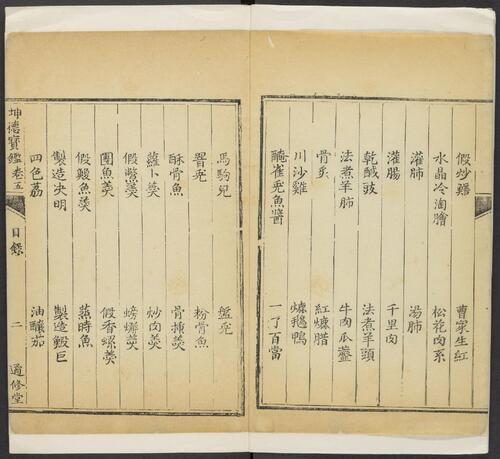 假炒鱔 曹家生紅
水晶冷淘膾 松花肉系
灌肺 湯肺
灌腸 千里肉
乾醎豉 法煮羊頭
法煮羊肺 牛肉瓜虀
骨炙 紅爊腊
川沙雞 爊鵝鴨
醃雀兎魚醬 一了百當
馬駒兒 盤兎
署兎 粉骨魚
酥骨魚 骨挿羹
蘿卜羹 炒肉羹
假鱉羹 螃蠏羹
團魚羹 假香螺羹
假鰒魚羹 蒸時魚
製造决明 製造鰕巨
四色荔 油釀茄
坤德寶鑑卷五 目錄 二 適修堂